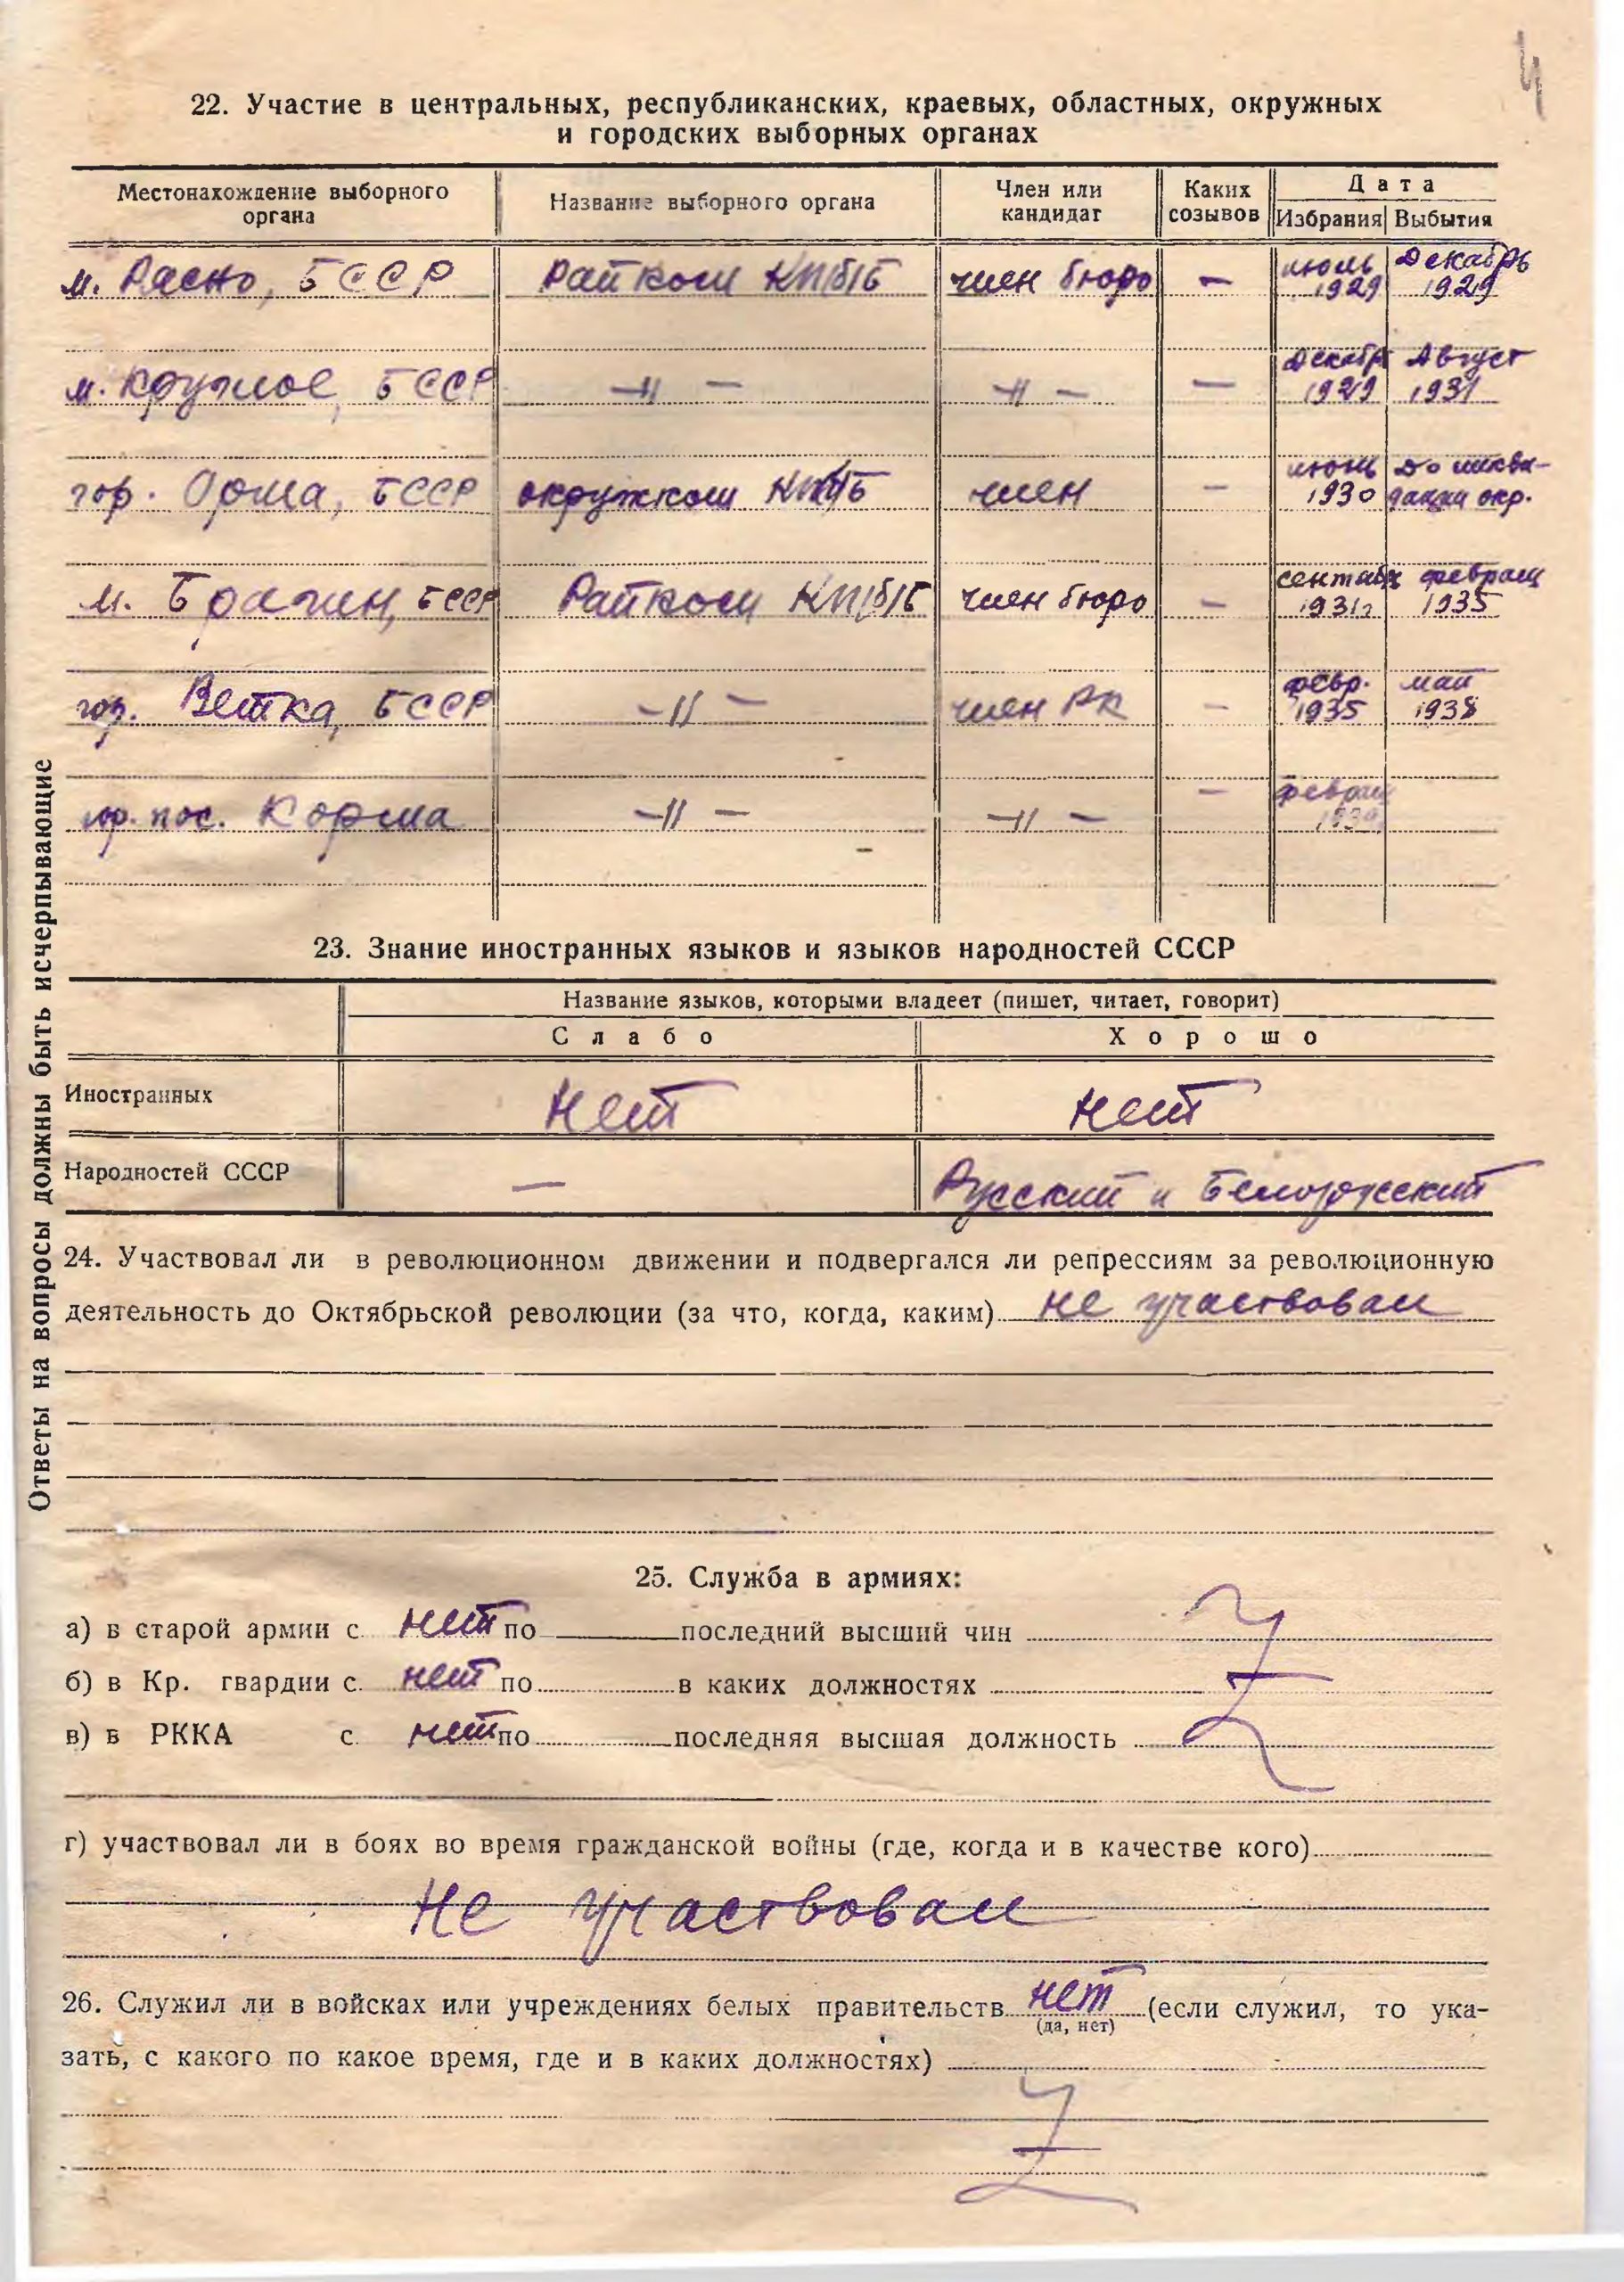 4
22. Участие в центральных, республиканских, краевых, областных, окружных
и городских выборных органах
Местонахождение выборного органа | Название выборного органа | Член или кандидат | Каких созывов | Дата Избрания | Выбытия
м. Расно, БССР | Райком КП(б)Б | член бюро | — | июль 1929 | Декабрь 1929
м. Круглое, БССР | —"— | —"— | — | Декабр 1929 | Август 1931
гор. Орша, БССР | окружком КП(б)Б | член | — | июнь 1930 | до ликви-дации окр.
м. Брагин, БССР | Райком КП(б)Б | член бюро | — | сентябр 1931г | феврал 1935
гор. Ветка, БССР | —"— | член РК | — | февр. 1935 | май 1938
гор. пос. Корма | —"— | —"— | — | феврал
23. Знание иностранных языков и языков народностей СССР
Название языков, которыми владеет (пишет, читает, говорит)
Слабо | Хорошо
Иностранных | нет | нет
Народностей СССР | — | Русский и Белорусский
24. Участвовал ли в революционном движении и подвергался ли репрессиям за революционную
деятельность до Октябрьской революции (за что, когда, каким) не участвовал
25. Служба в армиях:
а) в старой армии с нет по последний высший чин
б) в Кр. гвардии с. нет по в каких должностях
в) в РККА с. нет по последняя высшая должность
г) участвовал ли в боях во время гражданской войны (где, когда и в качестве кого)
Не участвовал
26. Служил ли в войсках или учреждениях белых правительств нет (если служил, то ука-
(да, нет)
зать, с какого по какое время, где и в каких должностях)
Ответы на вопросы должны быть исчерпывающие